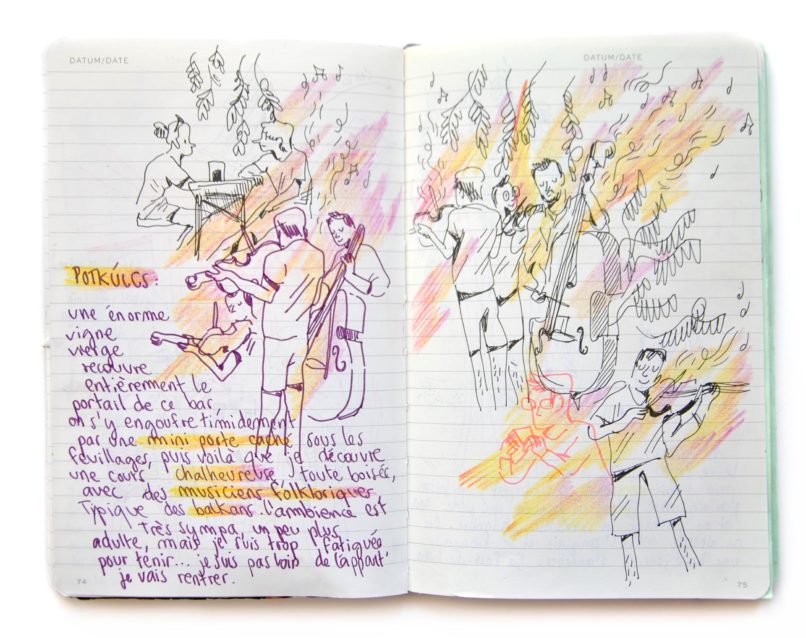 DATUM/DATE
POTKULCS :
une énorme
vigne
vierge
recouvre
entièrement le
portail de ce bar,
on s'y engoufre timidement
par une mini porte caché sous les
feuillages, puis voilà que je découvre
une cours chalheureuse, toute boisée,
avec des musiciens folkloriques
Typique des balkans. L'ambience est
très sympa, un peu plus
adulte, mais je suis trop fatiguée
pour tenir... je suis pas loin de l'appart'
je vais rentrer.
74
DATUM/DATE
75